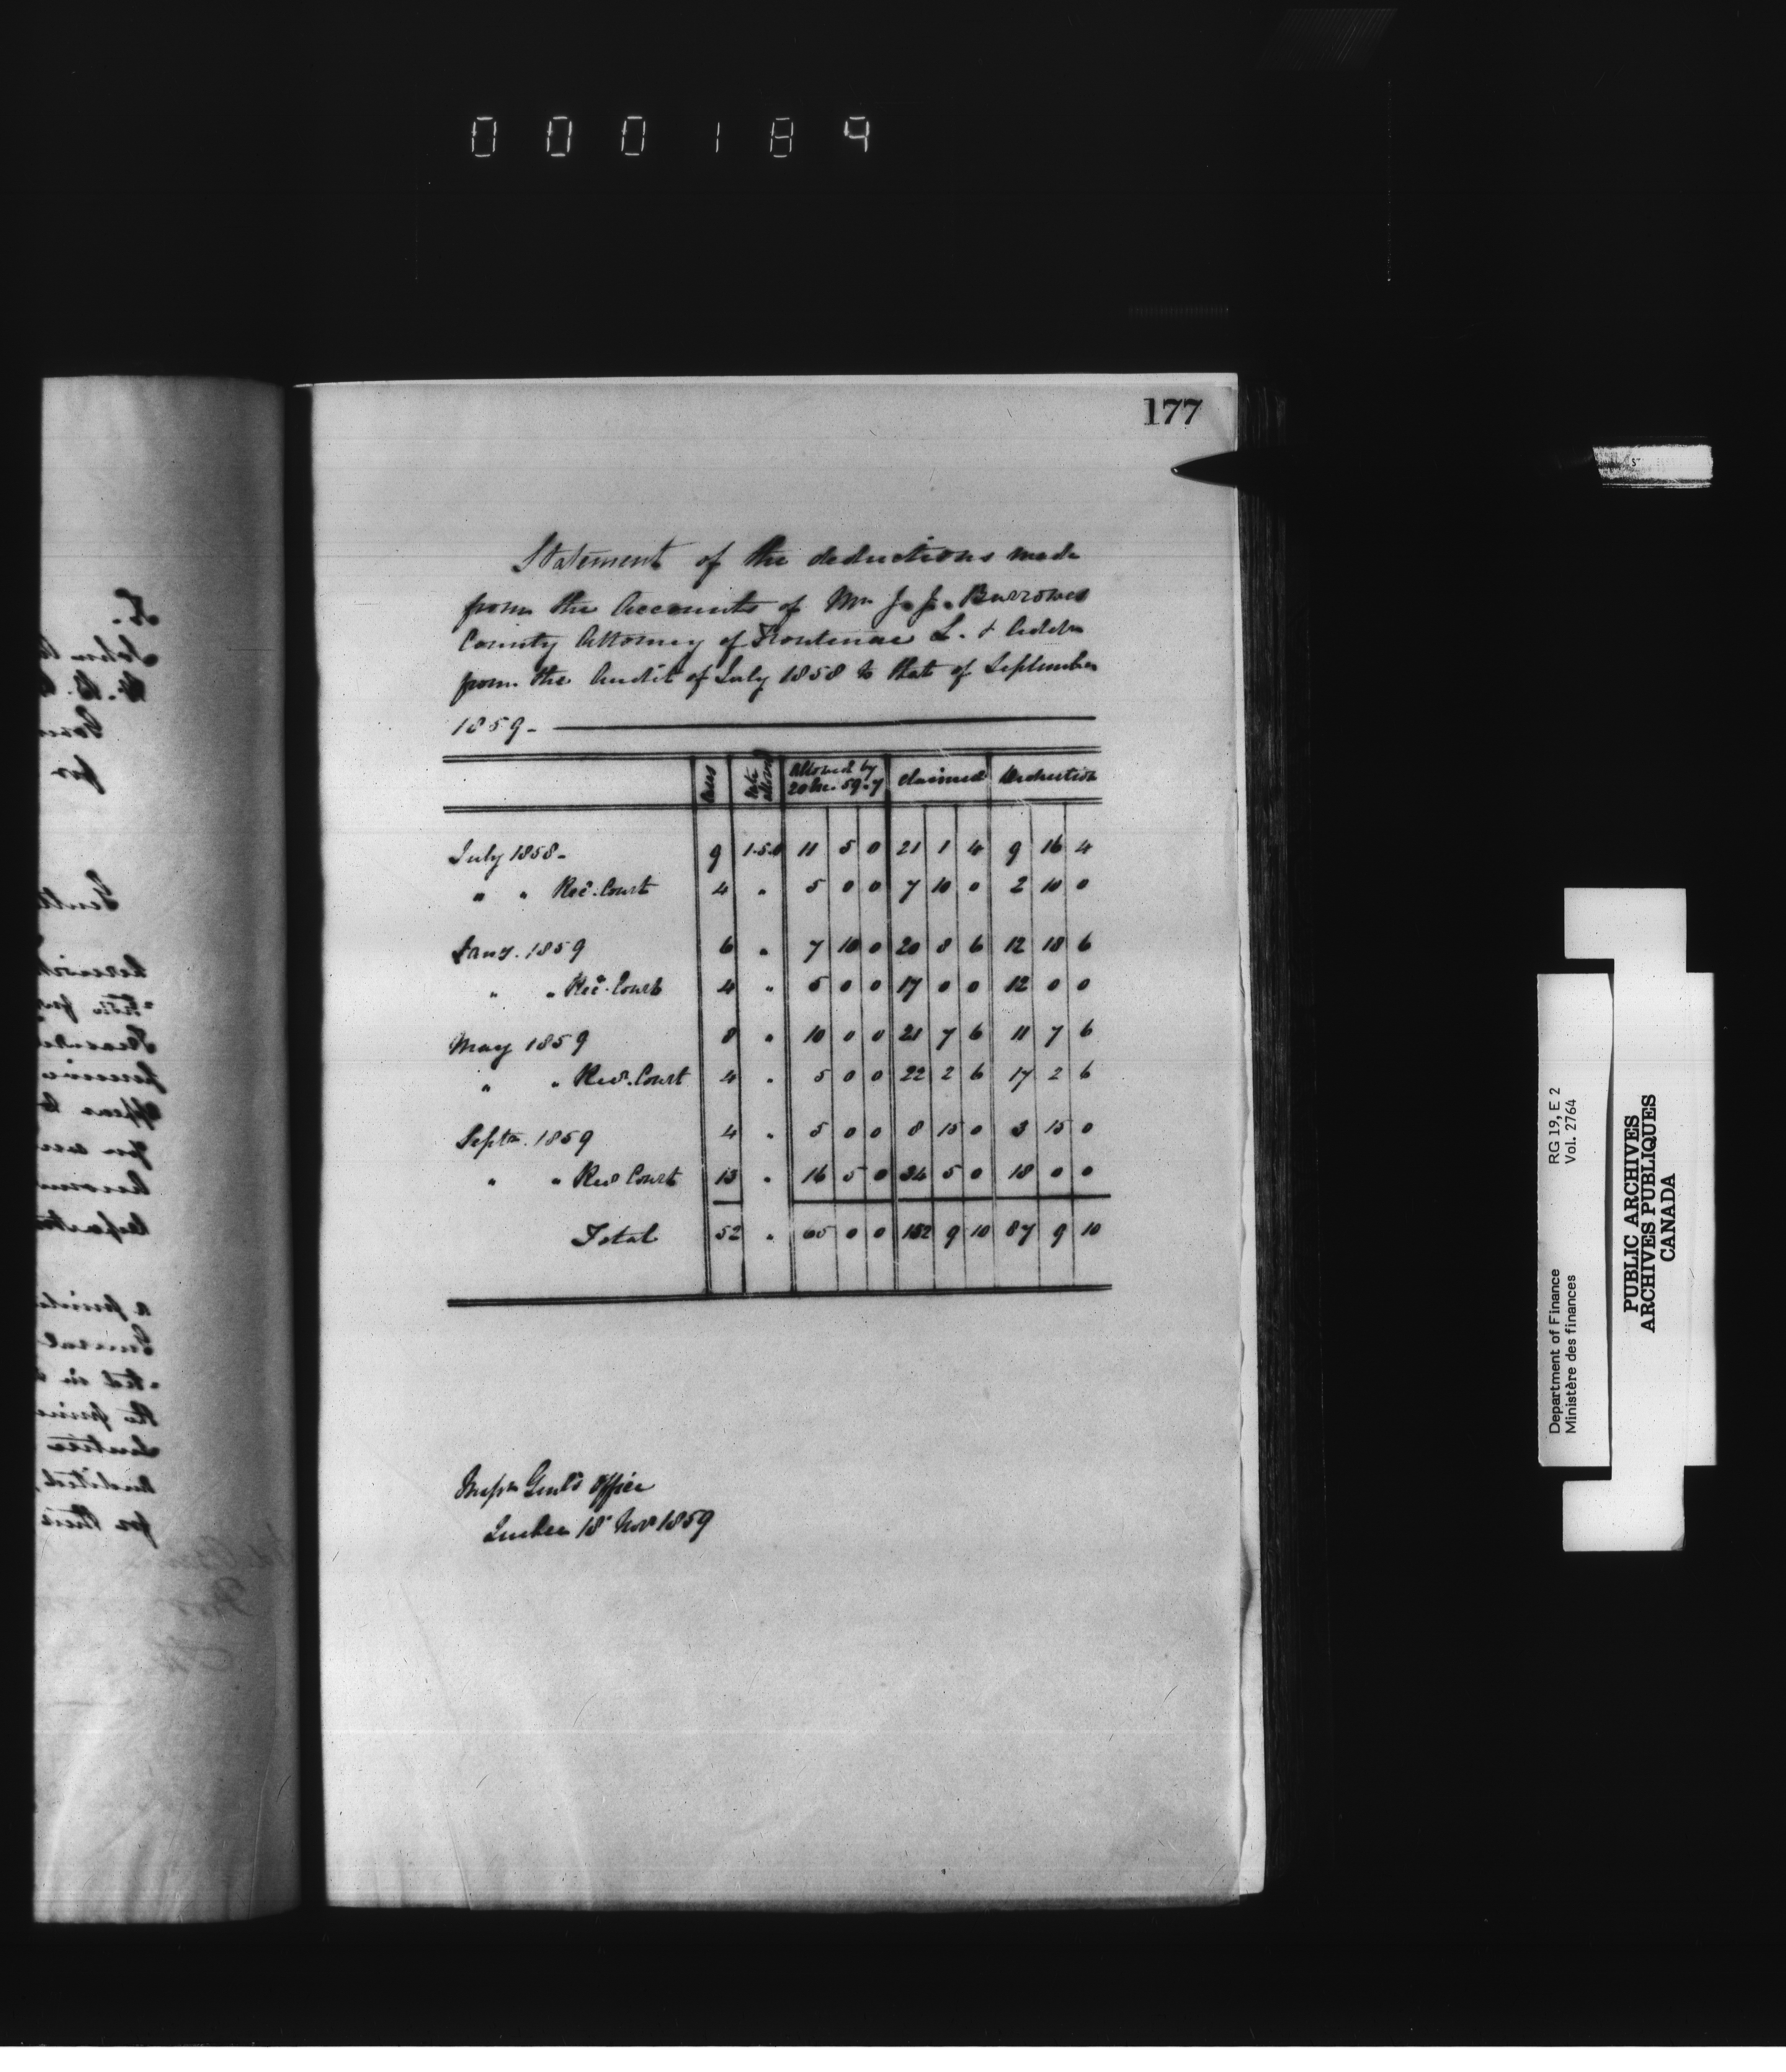 000189
177
Statement of the deductions made
from the Accounts of Mr J. J. Burrowes
County Attorney of Frontenac L. & Addn
from the Audit of July 1858 to that of September
1859-
Cases Rate allowed Allowed by claimed Deduction
July 1858- 9 1.5.0 11 5 0 21 1 4 9 16 4
" " Rec. Court 4 " 5 0 0 7 10 0 2 10 0
Jany. 1859 6 " 7 10 0 20 8 6 12 18 6
" " Rec. Court 4 " 5 0 0 17 0 0 12 0 0
May 1859 8 " 10 0 0 21 7 6 11 7 6
" " Rec. Court 4 " 5 0 0 22 2 6 17 2 6
Septr. 1859 4 " 5 0 0 8 15 0 3 15 0
" " Rec Court 13 " 16 5 0 34 5 0 18 0 0
Total 52 " 65 0 0 152 9 10 87 9 10
Inspr Genl's Office
Quebec 18 Nov 1859
RG 19, E 2
Vol. 2764
Department of Finance
Ministère des finances
PUBLIC ARCHIVES
ARCHIVES PUBLIQUES
CANADA